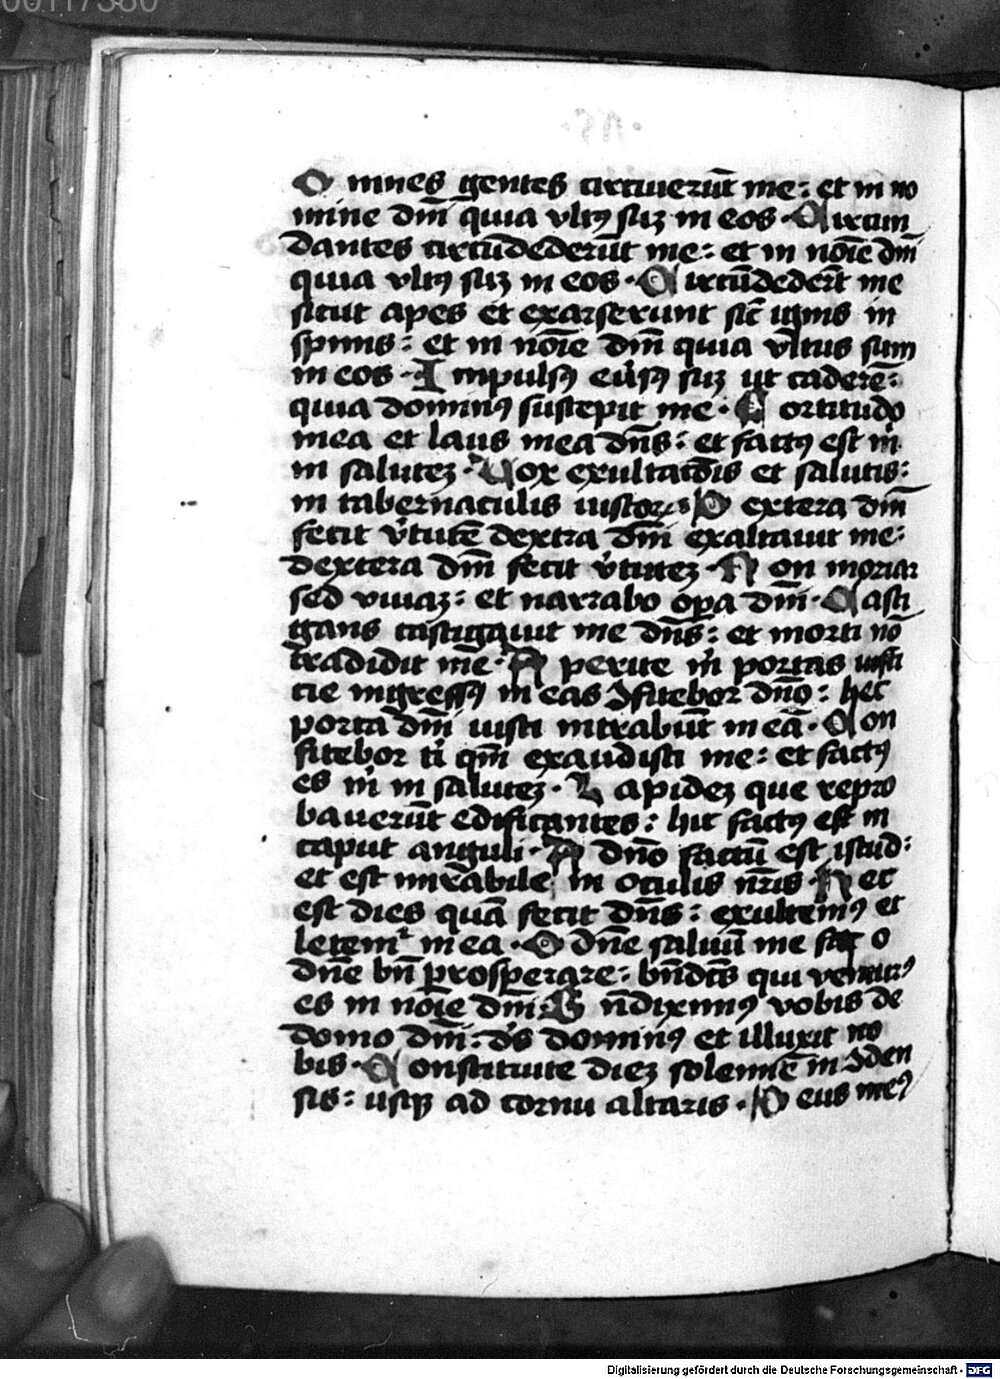 00117380
Omnes gentes circuierūt me: et in no
mine dm̄ quia vltꝰ suꝫ in eos. Circun
dantes circūdederūt me: et in nōie dm̄
quia vltꝰ suꝫ in eos. Circūdedert̄ me
sicut apes et exarserunt sic̄ ignis in
spinis: et in nōie dm̄ quia vltus sum
in eos. Impulsꝰ eūsꝰ suꝫ ut caderē:
quia dominꝰ suscepit me. Fortitudo
mea et laus mea dn̄s: et factꝰ est m̄
in saluteꝫ. Vox exultacōis et salutis:
in tabernaculis iustoꝝ. Dextera dm̄
fecit v̓tutē dextra dm̄ exaltauit me:
dextera dm̄ fecit v̓tuteꝫ. Non moriar
sed viuaꝫ: et narrabo oꝑa dm̄. Casti
gans castigauit me dn̄s: et morti nō
tradidit me. Aperite m̄ portas iusti
cie ingressꝰ in eas ꝯfitebor dn̄o: hec
porta dm̄ iusti intrabūt in eā. Con
fitebor ti qm̄ exaudisti me: et factꝰ
es m̄ in saluteꝫ. Lapideꝫ que repro
bauerūt edificantes: hic factꝰ est in
caput anguli. A dn̄o factū est istud:
et est mirabile in oculis nr̄is. Hec
est dies quā fecit dn̄s: exultemꝰ et
letemᷣ in ea. O dn̄e saluū me fac o
dn̄e bn̄ prosperare: bn̄dc̄s qui venturꝰ
es in nōie dm̄. Bn̄diximꝰ vobis de
domo dm̄: ds̄ dominꝰ et illuxit no
bis. Constituite dieꝫ solennē in ꝯden
sis: usqꝫ ad cornu altaris. Deus meꝰ
Digitalisierung gefördert durch die Deutsche Forschungsgemeinschaft - DFG